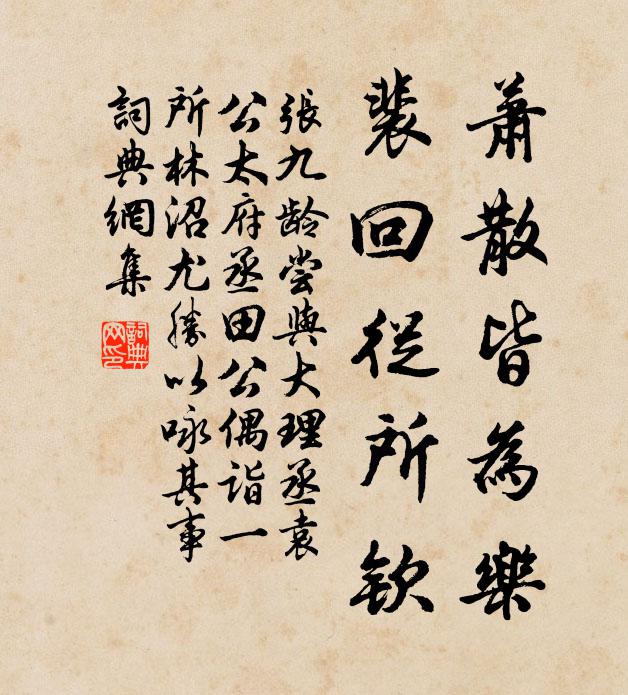 蕭散皆為樂
裴回從所欽
張九龄尝與大理丞袁
公太府丞田公偶詣一
所林沼尤勝以咏其事
詞典網集
詞典
网印